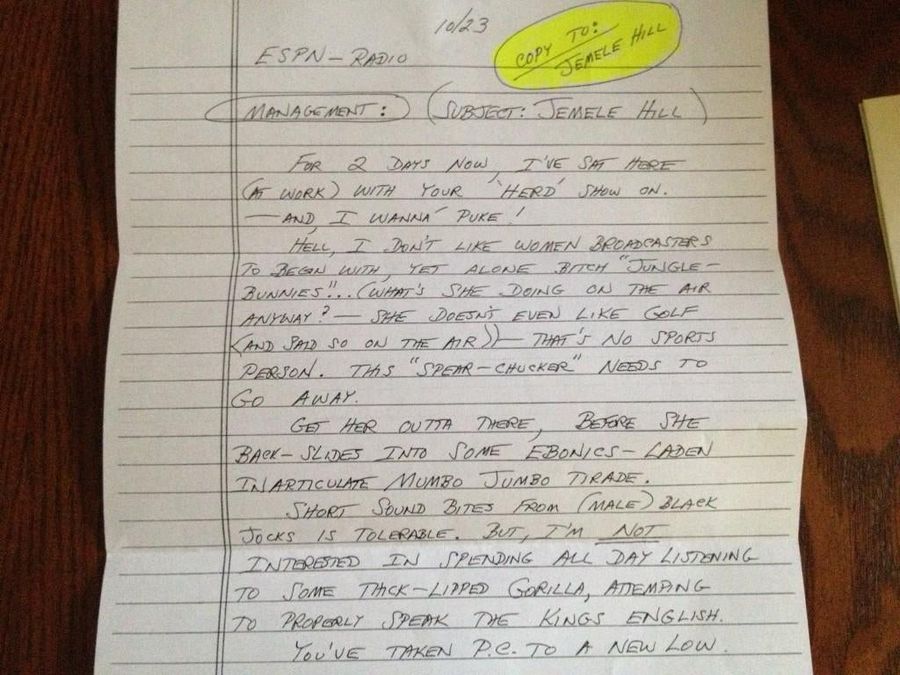 10/23
COPY TO:
JEMELE HILL
ESPN-RADIO
MANAGEMENT: (SUBJECT: JEMELE HILL)
FOR 2 DAYS NOW, I'VE SAT HERE
(AT WORK) WITH YOUR 'HERD' SHOW ON.
—AND, I WANNA' PUKE!
HELL, I DON'T LIKE WOMEN BROADCASTERS
TO BEGIN WITH, YET ALONE BITCH "JUNGLE-
BUNNIES"... (WHAT'S SHE DOING ON THE AIR
ANYWAY? — SHE DOESN'T EVEN LIKE GOLF
(AND SAID SO ON THE AIR)) — THAT'S NO SPORTS
PERSON. THIS "SPEAR-CHUCKER" NEEDS TO
GO AWAY.
GET HER OUTTA THERE, BEFORE SHE
BACK-SLIDES INTO SOME EBONICS-LADEN
INARTICULATE MUMBO JUMBO TIRADE.
SHORT SOUND BITES FROM (MALE) BLACK
JOCKS IS TOLERABLE. BUT, I'M NOT
INTERESTED IN SPENDING ALL DAY LISTENING
TO SOME THICK-LIPPED GORILLA, ATTEMPING
TO PROPERLY SPEAK THE KINGS ENGLISH.
YOU'VE TAKEN P.C. TO A NEW LOW.